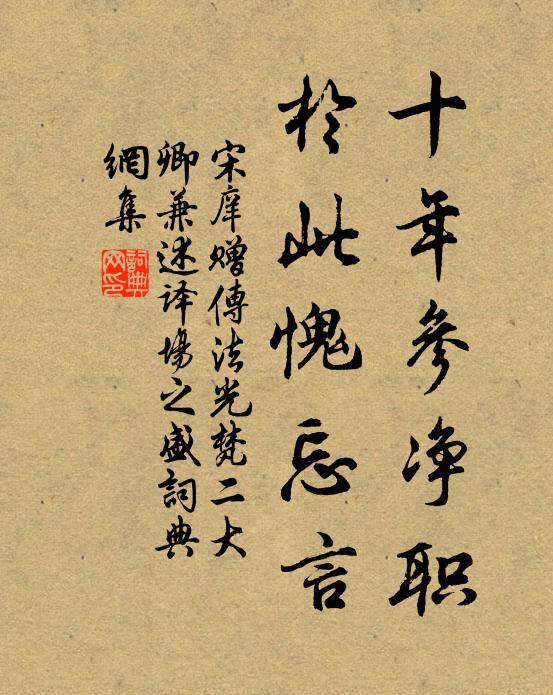 十年參净职
於此愧忘言
宋庠赠傳法光梵二大
卿兼述译場之盛詞典
網集
詞典
网印